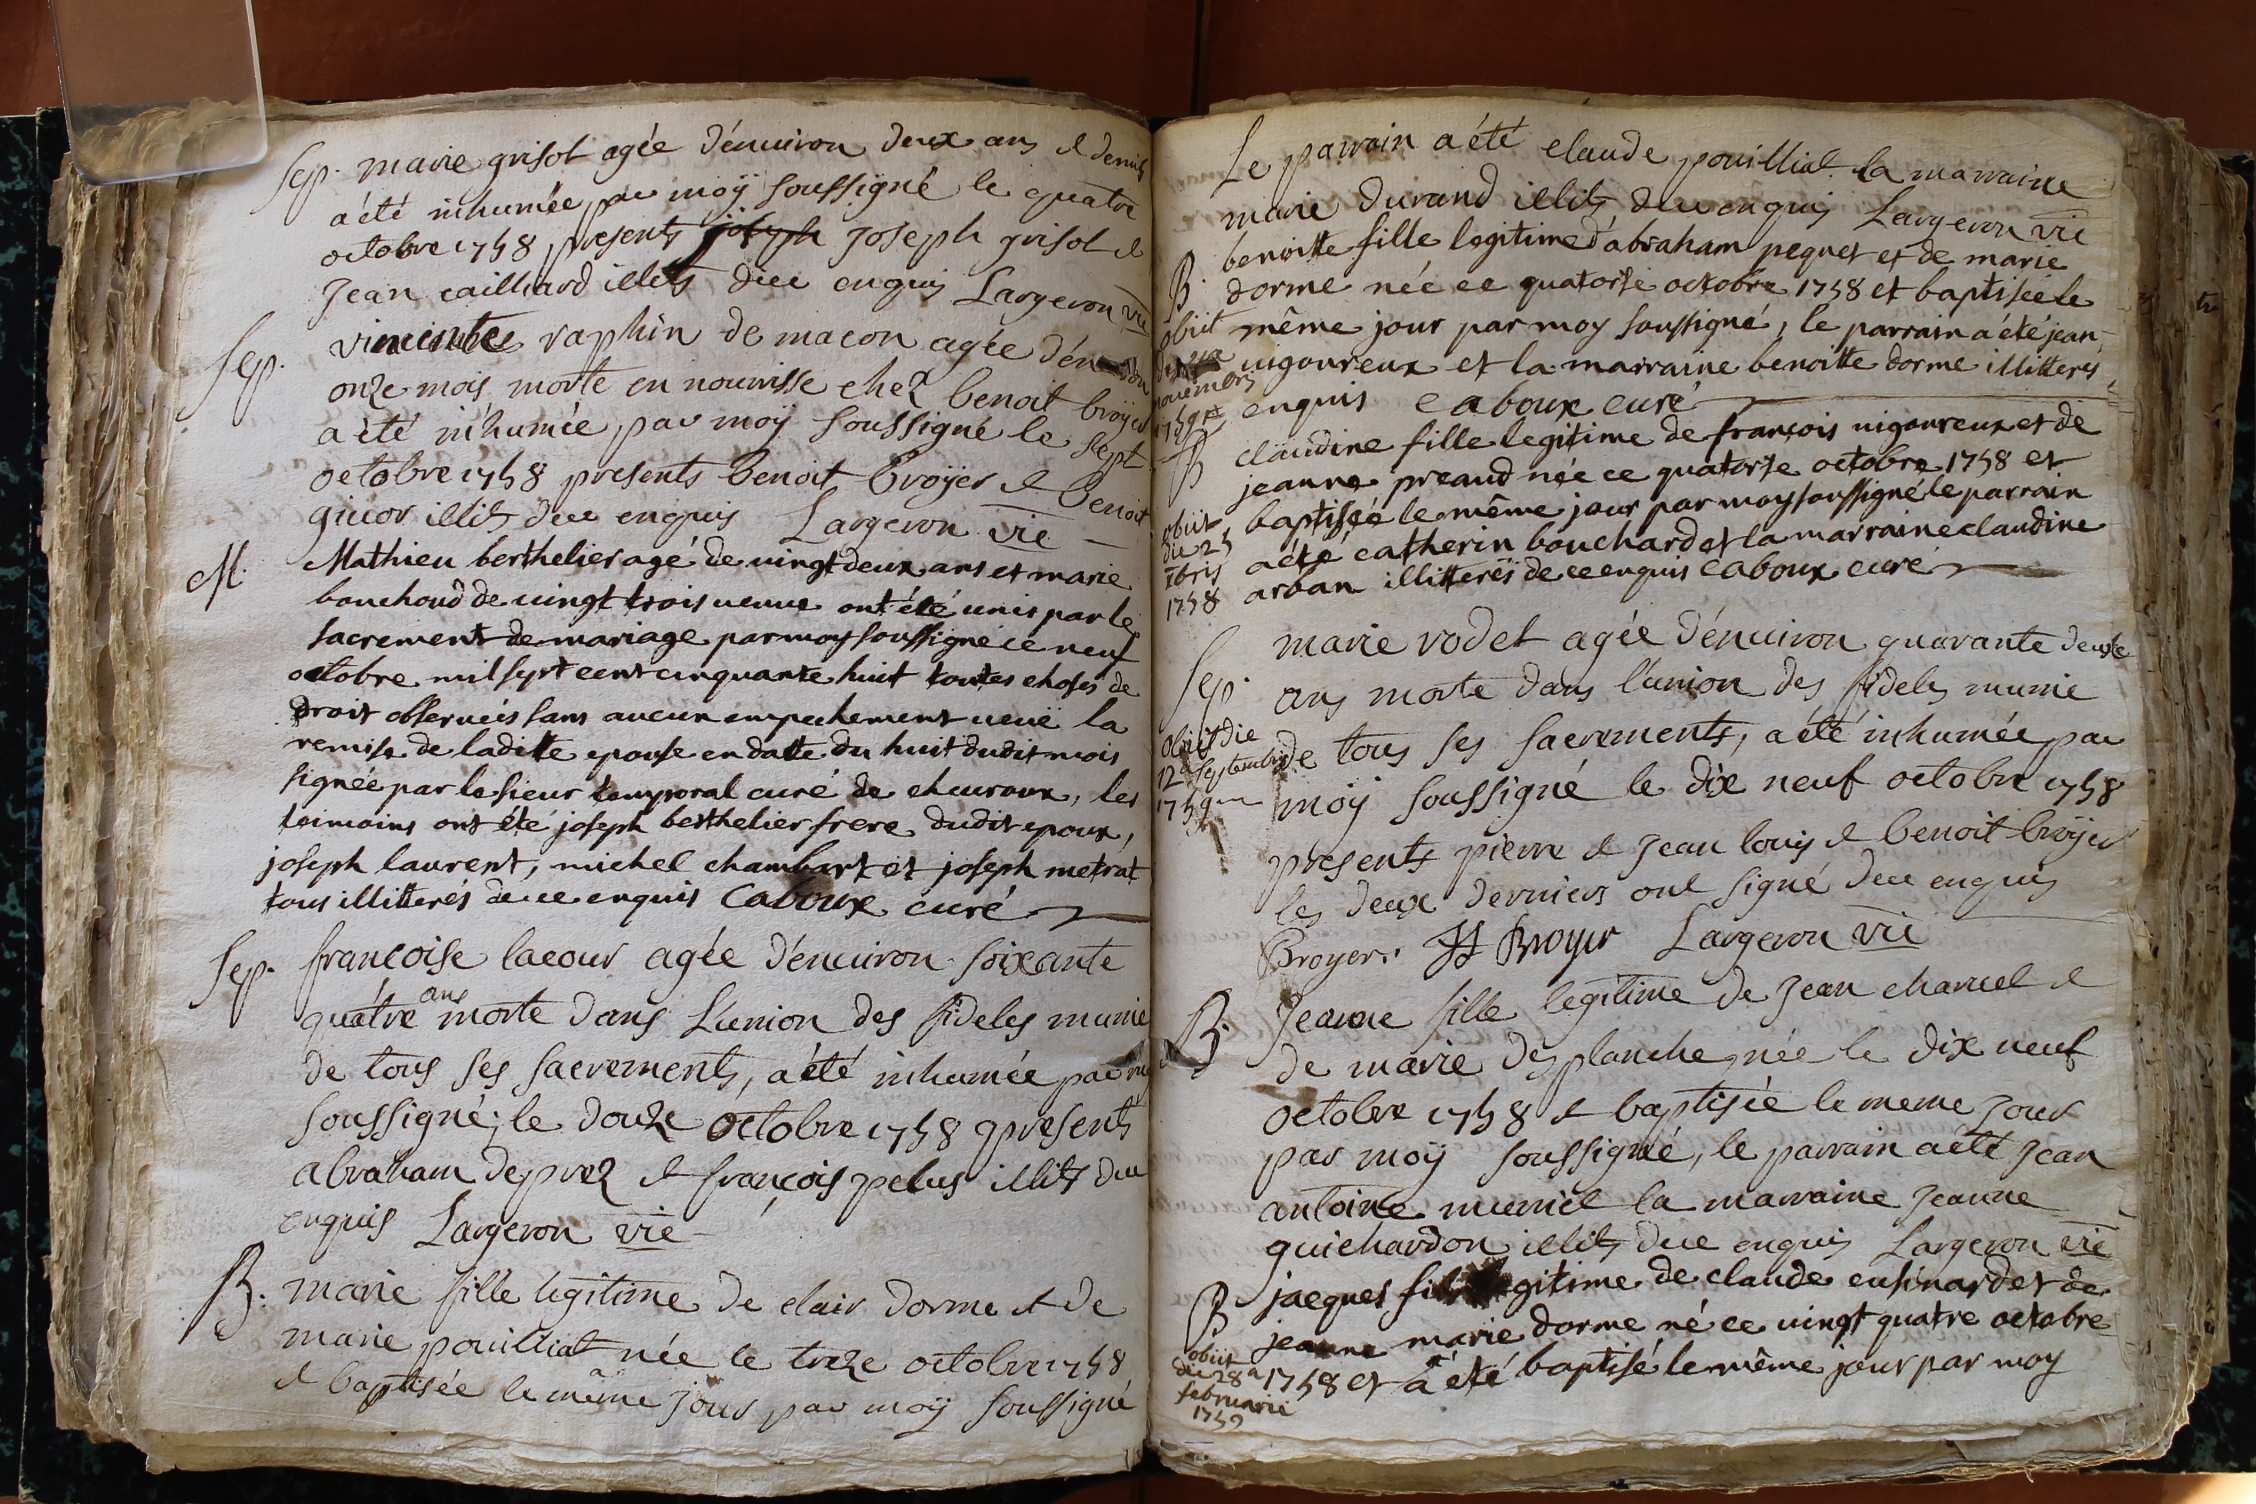 Sep. marie grisot agée d'énuiron deux ans & demis
a été inhumée par moÿ soussigné le quatre
octobre 1758 presents joseph Joseph grisot &
Jean cailliard illits dece enquis Largeron vic
Sep. raphin de macon agée
onze mois morte en nourrisse chez benoit broÿer
a été inhumée par moÿ soussigné le sept
octobre 1758 presents benoit broÿer & benoit
illits dece enquis Largeron vic
M. Mathieu berthelier agé de uingt deux ans et marie
bouchoud de uingt trois ueuue ont été unis par le
sacrement de mariage par moy soussigné ce neuf
octobre mil sept cent cinquante huit toutes choses de
droit obseruées sans aucun empechement ueuë la
remise de laditte epouse en datte du huit dudit mois
signée par le sieur temporal curé de cheuroux, les
temoins ont été joseph berthelier frere dudit epoux,
joseph laurent, michel chambart et joseph metrat
tous illitterés de ce enquis Caboux curé
Sep. françoise lacour agée d'énuiron soixante
quatre ans morte dans L'union des fideles munie
de tous ses sacrements, a été inhumée par moÿ
soussigné, le douze octobre 1758 presents
abraham deprez & françois pelus illits dece
enquis Largeron vic
B. marie fille legitime de clair dorme & de
marie pouilliat née le treze octobre 1758
& baptisée le même jour par moÿ soussigné
Le parrain a été claude pouilliat la marraine
marie durand illits dece enquis Largeron vic
B. benoitte fille legitime d'abraham pequet et de marie
dorme née ce quatorse octobre 1758 et baptisée le
obiit même jour par moy soussigné, le parrain a été jean
die uigoureux et la marraine benoitte dorme illitterés
nouembris
enquis Caboux curé
B claudine fille legitime de françois uigoureux et de
jeanne preaud née ce quatorse octobre 1758 et
obiit baptisée le même jour par moy soussigné le parrain
die 25 a été catherin bouchard et la marraine claudine
bris arban illitterés de ce enquis Caboux curé
1758
Sep. marie rodet agée d'énuiron quarante deuxe
ans morte dans l'union des fideles munie
obiit die
12a septembris de tous ses sacrements, a été inhumée par
moÿ soussigné le dix neuf octobre 1758
presents pierre & Jean louis & benoit broÿer
les deux derniers ont signé dece enquis
Broyer. Broyer Largeron vic
B. Jeanne fille legitime de Jean charuel &
de marie desplanche née le dix neuf
octobre 1758 & baptisée le meme jour
par moÿ soussigné, le parrain a été Jean
antoine muniel la marraine Jeanne
guichardon illits dece enquis Largeron vic
B jacques fils legitime de claude cusinard et de
jeanne marie dorme né ce uingt quatre octobre
obiit
die 28a 1758 et a été baptisé le même jour par moy
februarii
1759